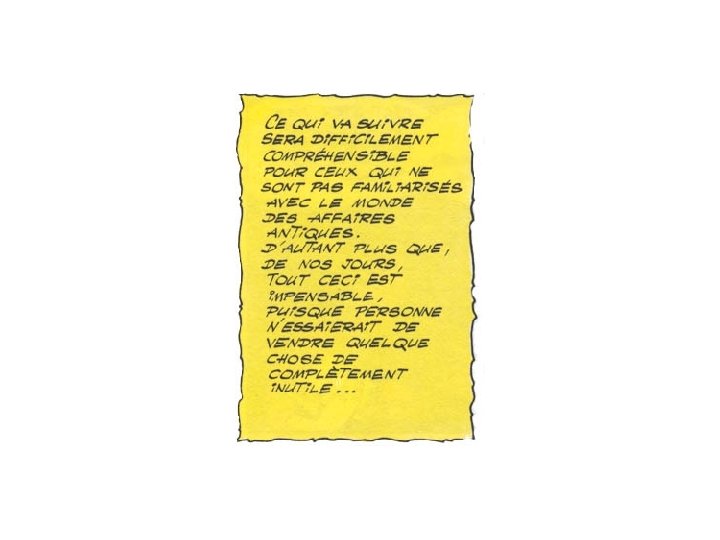 CE QUI VA SUIVRE
SERA DIFFICILEMENT
COMPRÉHENSIBLE
POUR CEUX QUI NE
SONT PAS FAMILIARISÉS
AVEC LE MONDE
DES AFFAIRES
ANTIQUES.
D'AUTANT PLUS QUE,
DE NOS JOURS,
TOUT CECI EST
IMPENSABLE,
PUISQUE PERSONNE
N'ESSAIERAIT DE
VENDRE QUELQUE
CHOSE DE
COMPLÈTEMENT
INUTILE...